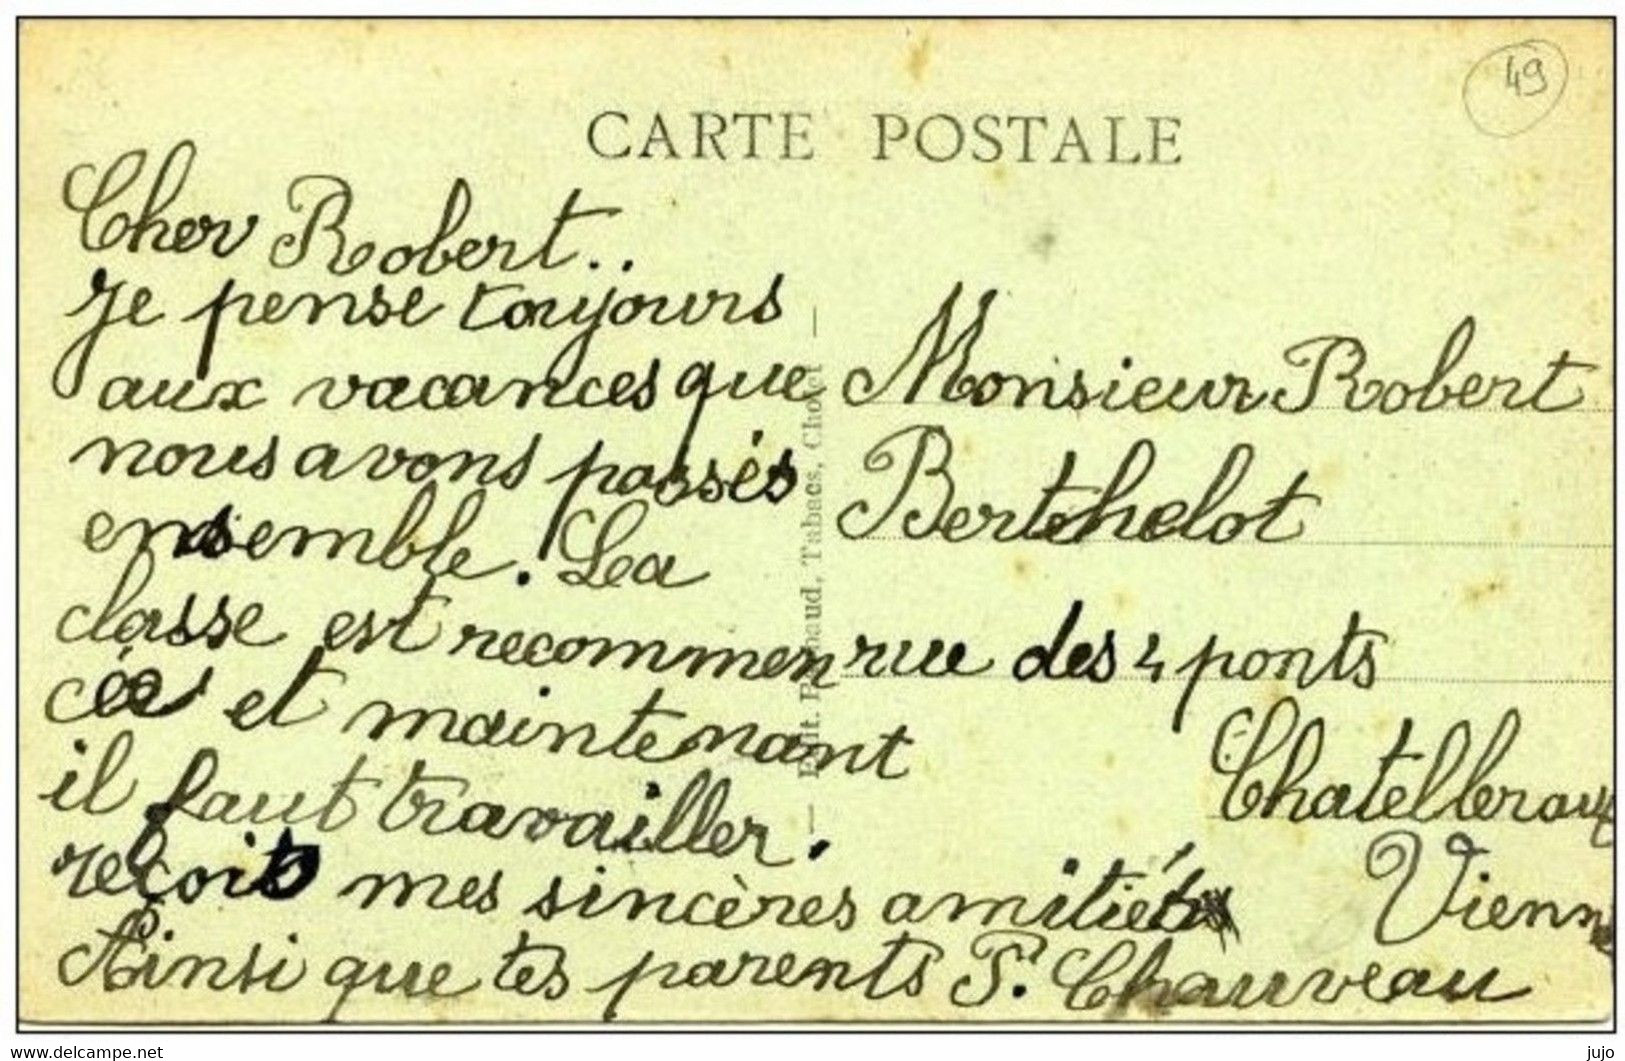 49
CARTE POSTALE
Cher Robert..
Je pense toujours
aux vacances que
nous avons passés
ensemble. La
classe est recommen
cée et maintenant
il faut travailler.
reçois mes sincères amitiés
Ainsi que tes parents P. Chauveau
Monsieur Robert
Berthelot
rue des 4 ponts
Chatelleraux
Vienne
Tabacs, Cholet
www.delcampe.net
jujo